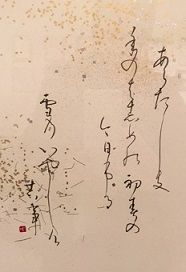 あらたしき
年のはしめの初春の
今日ふる
雪の
いやしけ